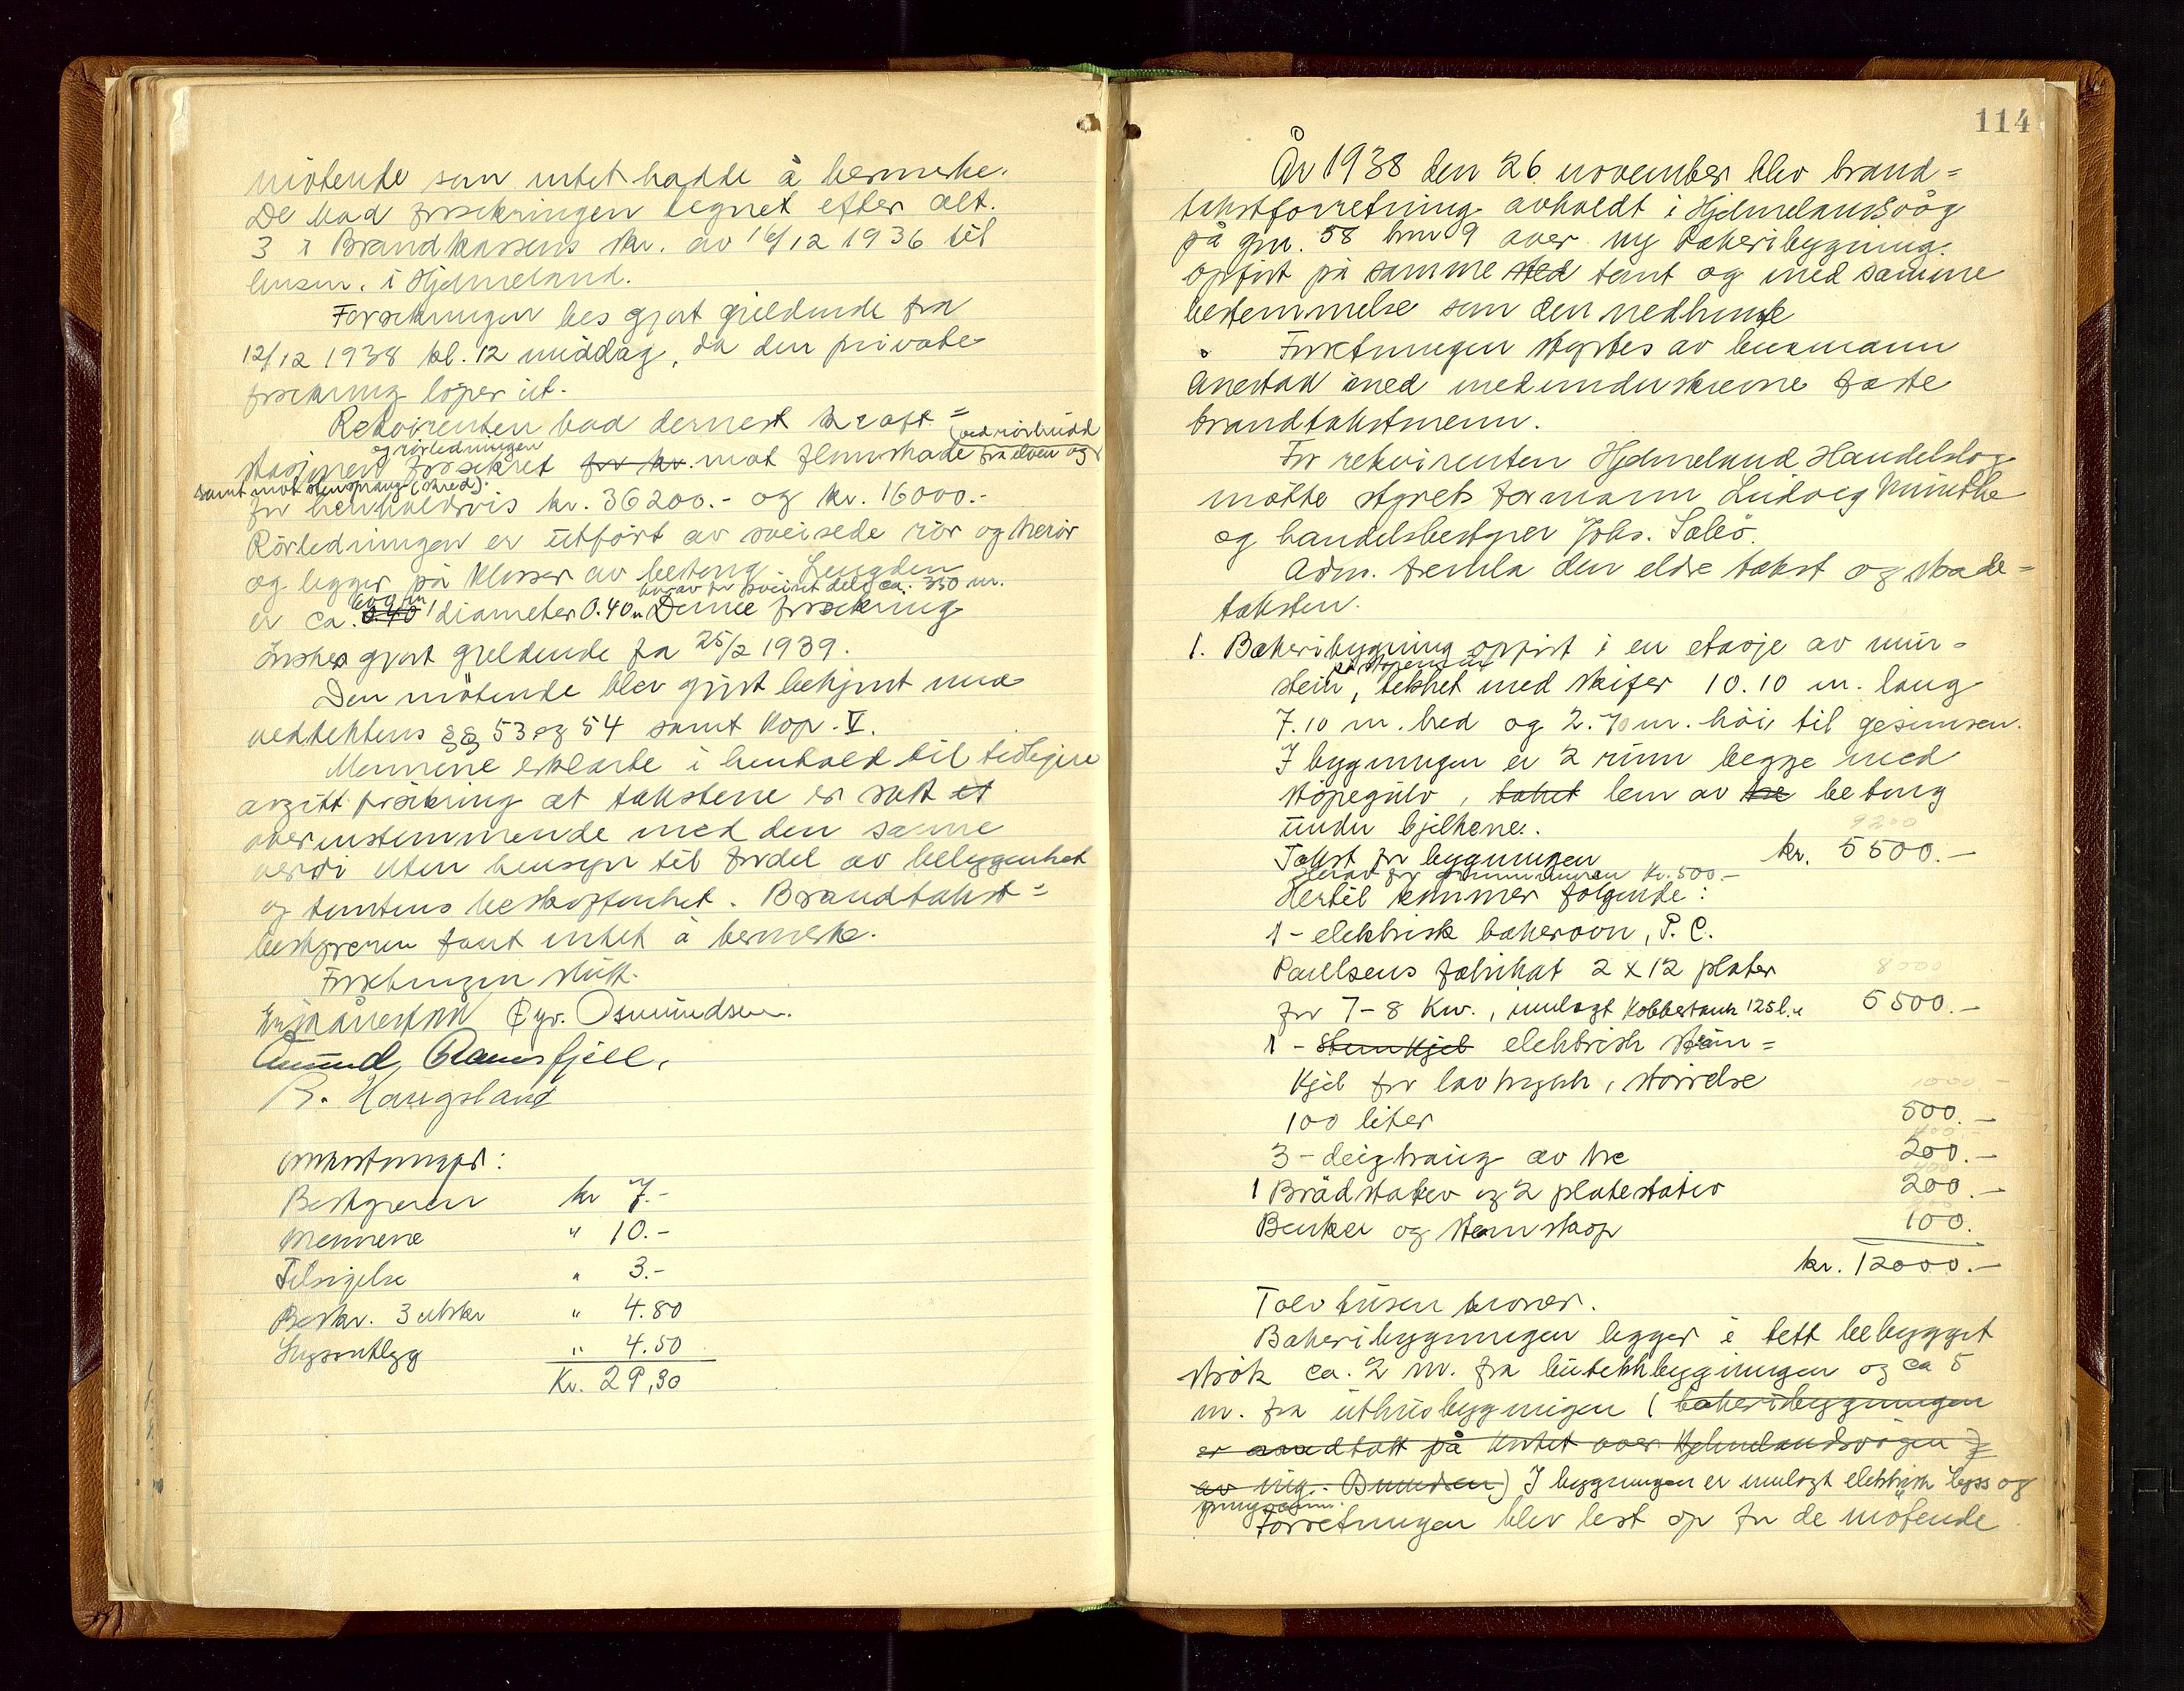 møtende som intet hadde å bemerke.
De bad forsikringen tegnet efter alt.
3 i Brandkassens skr. av 16/12 1936 til
lensm. i Hjelmeland.
Forsikringen bes gjort gjeldende fra
12/12 1938 kl. 12 middag, da den private
forsikring løper ut.
Rekvirenten bad dernest kraft=
og rørledningen (ved rørbrudd
stasjonen forsikret for kr. mot flomskade fra elven og
samt mot stensprang (skred).
for henholdsvis kr. 36200.- og kr. 16000.-
Rørledningen er utført av sveisede rør og trerør
og ligger på klosser av betong. Lengden
herav er sveiset del ca. 350 m.
er ca. 0.40 600 m diameter 0.40 m Denne forsikring
ønskes gjort gjeldende fra 25/2 1939.
Den møtende blev gjort bekjent med
vedtektens §§ 53 og 54 samt kap. V.
Mennene erklærte i henhold til tidligere
avgitt forsikring at takstene er satt et
overenstemmende med den sanne
verdi uten hensyn til fordel av beliggenhet
og tomtens beskaffenhet. Brandtakst=
bestyreren fant intet å bemerke.
Forretningen slutt.
Gyr. Osmundsen.
Amund Ramsfjell.
R. Haugsland
Omkostninger:
Bestyreren kr 7.-
Mennene " 10.-
Tilsigelse " 3.-
Beskr. 3 utskr " 4.80
Skyssutlegg " 4.50
Kr. 29,30
114
År 1938 den 26 november blev brand=
takstforretning avholdt i Hjelmelandsvåg
på gnr. 58 bnr 9 over ny bakeribygning
opført på samme sted tomt og med samme
bestemmelse som den nedbrente
Forretningen styrtes av lensmann
Ånestad med medunderskrevne faste
brandtakstmenn.
For rekvirenten Hjelmeland Handelslag
møtte styrets formann Ludvig Munthe
og handelsbestyrer Johs. Sæbø.
Adm. fremla den eldre takst og skade=
taksten.
1. Bakeribygning opført i en etasje av mur=
på støpemur
stein, tekket med skifer 10.10 m. lang
7.10 m. bred og 2.70 m. høi til gesimsen.
I bygningen er 2 rum begge med
støpegulv, taket lem av tre betong
under bjelkene.
9200
Takst for bygningen kr. 5500.-
Herav for grunnmuren kr. 500.-
Hertil kommer følgende:
1 - elektrisk bakerovn, P. C.
Paulsens fabrikat 2 x 12 plater
8000
for 7-8 Kw., innlagt kobbertank 125 l. 5500.-
1 - stemkjel elektrisk støm=
kjel for lavtrykk, størrelse
1000.-
100 liter 500.-
3 - deigtraug av tre 200.-
1 Brødstativ og 2 platestativ 200.-
Benker og stemskap 100.
kr. 12000.-
Tolv tusen kroner.
Bakeribygningen ligger i tett bebygget
strøk ca. 2 m. fra butekkbygningen og ca 5
m. fra uthusbygningen (bakeribygningen
er anndtatt på kartet over Hjelmelandsvågen
av ing. Osmundsen) I bygningen er innlagt elektrisk lyss og
Forretningen blev lest op for de møtende